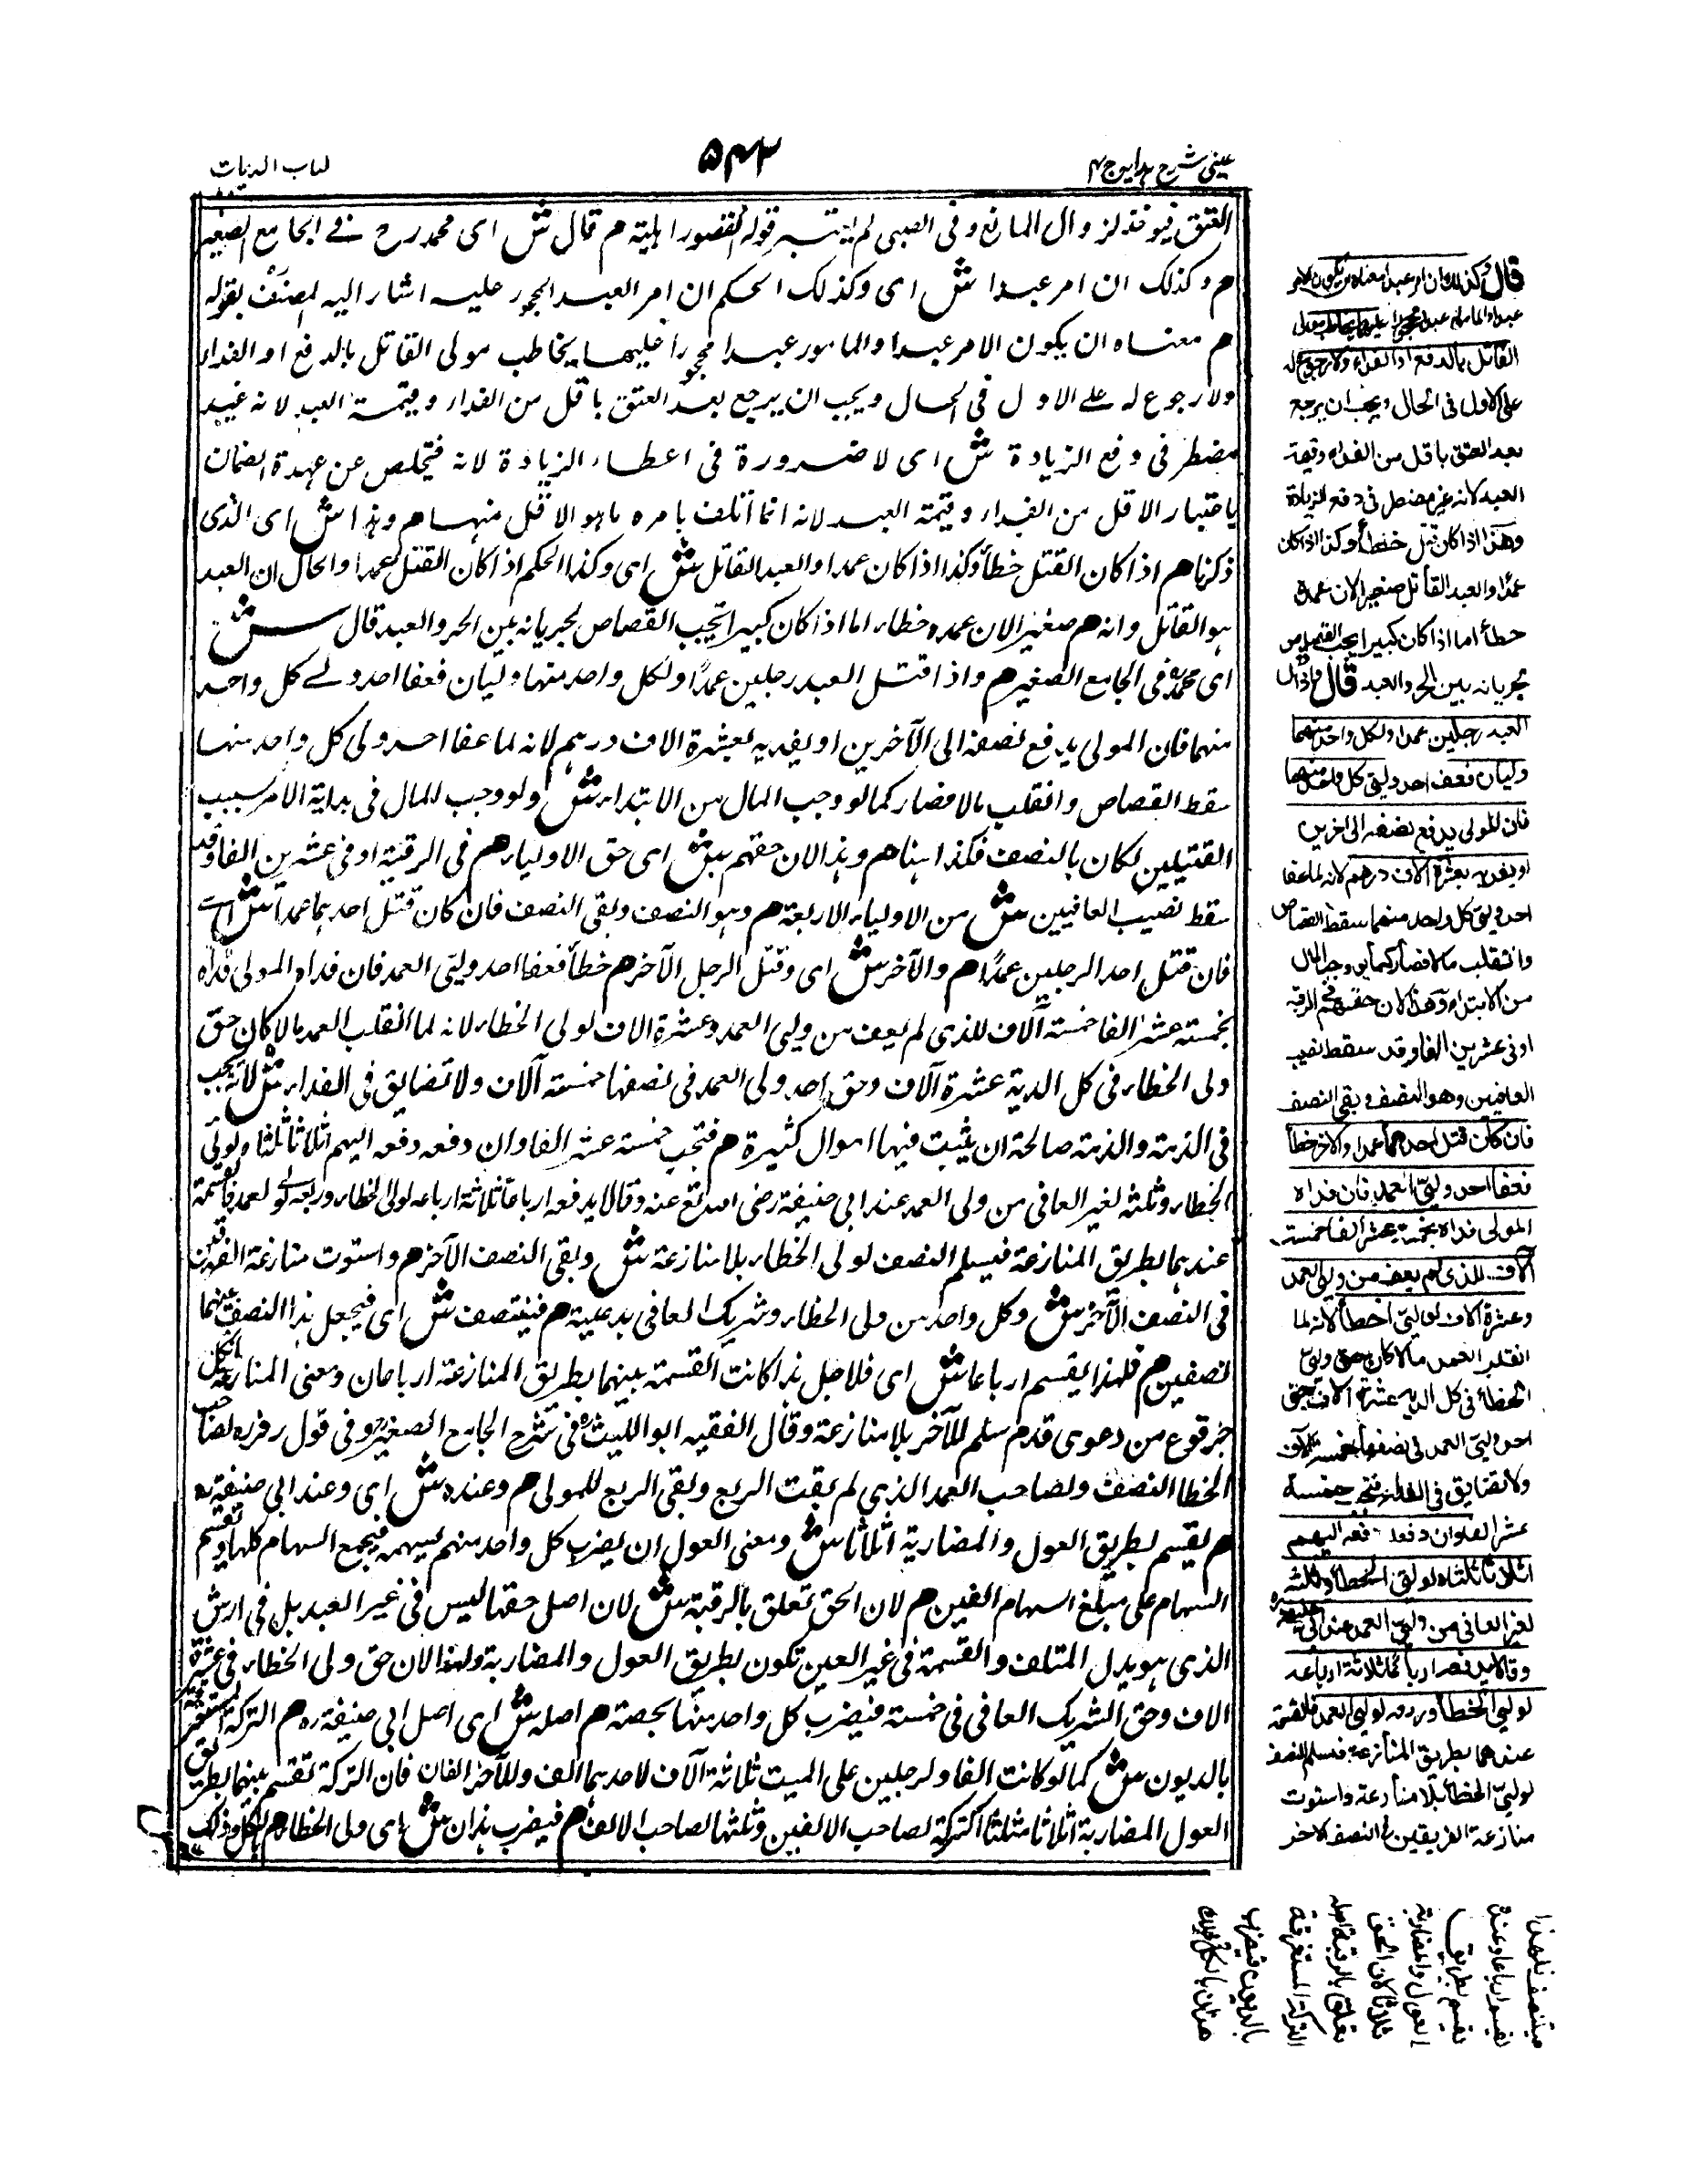 عینی شرح ہدایہ ج ۴
۵۴۳
کتاب الدیات
العتق فیوخذ لزوال المانع و فی الصبی لم یعتبر قولہ لقصور اہلیتہ م قال ش ای محمد رح فے الجامع الصغیر
م و کذلک ان امر عبدا ش ای و کذلک الحکم ان امر العبد المحجور علیہ اشار الیہ المصنف بقولہ
م معناہ ان یکون الآمر عبدا و المامور عبدا محجورا علیہما یخاطب مولی القاتل بالدفع او الفداء
ولا رجوع لہ علے الاول فی الحال و یجب ان یرجع بعد العتق باقل من الفداء و قیمتہ العبد لانہ غیر
مضطر فی دفع الزیادة ش ای لا ضرورة فی اعطاء الزیادة لانہ فیتخلص عن عہدة الضمان
باختیار الاقل من الفداء و قیمتہ العبد لانہ انما اتلف بامره ما ہو الاقل منہما م و ہذا ش ای الذی
ذکرناہ م اذا کان القتل خطأ و کذا اذا کان عمدا و العبد القاتل ش ای و کذا الحکم اذا کان القتل عمدا و الحال ان العبد
ہو القاتل و انہ م صغیر الان عمدہ خطاء اما اذا کان کبیرا یجب القصاص لجریانہ بین الحر و العبد قال ش
ای محمد رہ فی الجامع الصغیر م و اذا قتل العبد رجلین عمدًا و لکل واحد منہما ولیان فعفا احد ولے کل واحد
منہما فان المولی یدفع نصفہ الی الآخرین او یفدیہ بعشرة الاف درہم لانہ لما عفا احد ولی کل واحد منہما
سقط القصاص و انقلب مالا فصار کما لو وجب المال من الابتداء ش ولو وجب المال فی بدایة الامر بسبب
القتیلین لکان بالنصف فکذا ہنا م و ہذا لان حقہم ش ای حق الاولیاء م فی الرقبة او فی عشرین الفا و قد
سقط نصیب العافیین ش من الاولیاء الاربعة م و ہو النصف و بقی النصف فان کان قتل احدہما عمدا ش اے
فان قتل احد الرجلین عمدًا م و الآخر ش ای و قتل الرجل الآخر م خطأ فعفا احد ولیی العمد فان فداہ المولی فداہ
بخمستہ عشر الفا خمستہ آلاف للذی لم یعف من ولیی العمد و عشرة الاف لولی الخطاء لانہ لما انقلب العمد مالا کان حق
ولی الخطاء فی کل الدیة عشرة آلاف و حق احد ولی العمد فی نصفہا خمستہ آلاف ولا تضایق فی الفداء ش لانہ یجب
فی الذمة و الذمة صالحة ان یثبت فیہا اموال کثیرة م فتجب خمستہ عشر الفا و ان دفعہ دفعہ الیہم اثلاثا ثلثاہ لولی
الخطاء و ثلثہ لغیر العافی من ولی العمد عند ابی حنیفة رضی اللہ تع عنہ و قالا یدفعہ ارباعا ثلاثة ارباعہ لولی الخطاء و ربعہ لولے العمد فالقسمة
عندہما بطریق المنازعة فیسلم النصف لولی الخطاء بلا منازعة ش و بقی النصف الآخر م و استوت منازعة الفریقین
فی النصف الآخر ش و کل واحد من ولی الخطاء و شریک العافی یدعیہ م فینتصف ش ای فیجعل ہذا النصف بینہما
نصفین م فلہذا یقسم ارباعا ش ای فلاجل ہذا کانت القسمة بینہما بطریق المنازعة ارباعا و معنی المنازعة ان کل
جزء قوع من دعوی قدم سلم للآخر بلا منازعة و قال الفقیہ ابو اللیث رہ فی شرح الجامع الصغیر و فی قول زفر رہ لصاحب
الخطا النصف و لصاحب العمد الذی لم یعف الربع و بقی الربع للمولی م و عندہ ش ای و عند ابی حنیفة رہ
م یقسم بطریق العول و المضاربة اثلاثا ش و معنی العول ان یضرب کل واحد منہم بسہمہ فیجمع السہام کلہا و یقسم
السہام علی مبلغ السہام الفین م لان الحق تعلق بالرقبة ش لان اصل حقہما لیس فی غیر العبد بل فی ارش
الذی ہو بدل المتلف و القسمة فی غیر العین تکون بطریق العول و المضاربة و لہذا لان حق ولی الخطاء فی عشرة
الاف و حق الشریک العافی فی خمستہ فیضرب کل واحد منہما بحصتہ م اصلہ ش ای اصل ابی حنیفة رہ م الترکة المستغرقة
بالدیون ش کما لو کانت الفا و لرجلین علی المیت ثلاثة آلاف لاحدہما الف و للآخر الفان فان الترکة تقسم بینہما بطریق
العول المضاربة اثلاثا ثلثا الترکة لصاحب الالفین و ثلثہا لصاحب الالف م فیضرب ہذان ش ای ولی الخطاء م بالکل و ذلک
قال و کذلک ان امر عبدا معناہ ان یکون الآمر
عبدا و المامور عبدا محجورا علیہما یخاطب مولی
القاتل بالدفع او الفداء ولا رجوع لہ
علی الاول فی الحال و یجب ان یرجع
بعد العتق باقل من الفداء و قیمة
العبد لانہ غیر مضطر فی دفع الزیادة
و ھذا اذا کان قتل خطأ و کذا اذا کان
عمدًا و العبد القاتل صغیرا لان عمدہ
خطأ اما اذا کان کبیرا یجب القصاص
لجریانہ بین الحر و العبد قال و اذا قتل
العبد رجلین عمدا و لکل واحد منھما
ولیان فعفا احد ولیی کل واحد منھما
فان المولی یدفع نصفہ الی الاخرین
او یفدیہ بعشرة الاف درھم لانہ لما عفا
احد ولیی کل واحد منھما سقط القصاص
و انقلب مالا فصار کما لو وجب المال
من الابتداء و ھذا لان حقھم فی الرقبة
او فی عشرین الفا و قد سقط نصیب
العافیین و ھو النصف و بقی النصف
فان کان قتل احدھما عمدا و الاخر خطأ
فعفا احد ولیی العمد فان فداہ
المولی فداہ بخمسة عشر الفا خمسة
آلاف للذی لم یعف من ولیی العمد
و عشرة الاف لولیی الخطأ لانہ لما
انقلب العمد مالا کان حق ولیی
الخطأ فی کل الدیة عشرة الاف و حق
احد ولیی العمد فی نصفھا خمسة الاف
ولا تضایق فی الفداء فتجب خمسة
عشر الفا و ان دفعہ دفعہ الیھم
اثلاثا ثلثاہ لولیی الخطأ و ثلثہ
لغیر العافی من ولیی العمد عند ابی حنیفة رہ
و قالا یدفعہ ارباعًا ثلاثة ارباعہ
لولیی الخطأ و ربعہ لولیی العمد فالقسمة
عندھما بطریق المنازعة فیسلم النصف
لولیی الخطأ بلا منازعة و استوت
منازعة الفریقین فی النصف الاخر
فینتصف فلھذا
یقسم ارباعا و عندہ
یقسم بطریق
العول و المضاربة
ثلاثا لان الحق
تعلق بالرقبة اصلہ
الترکة المستغرقة
بالدیون فیضرب
ھذان بالکل و ذلک